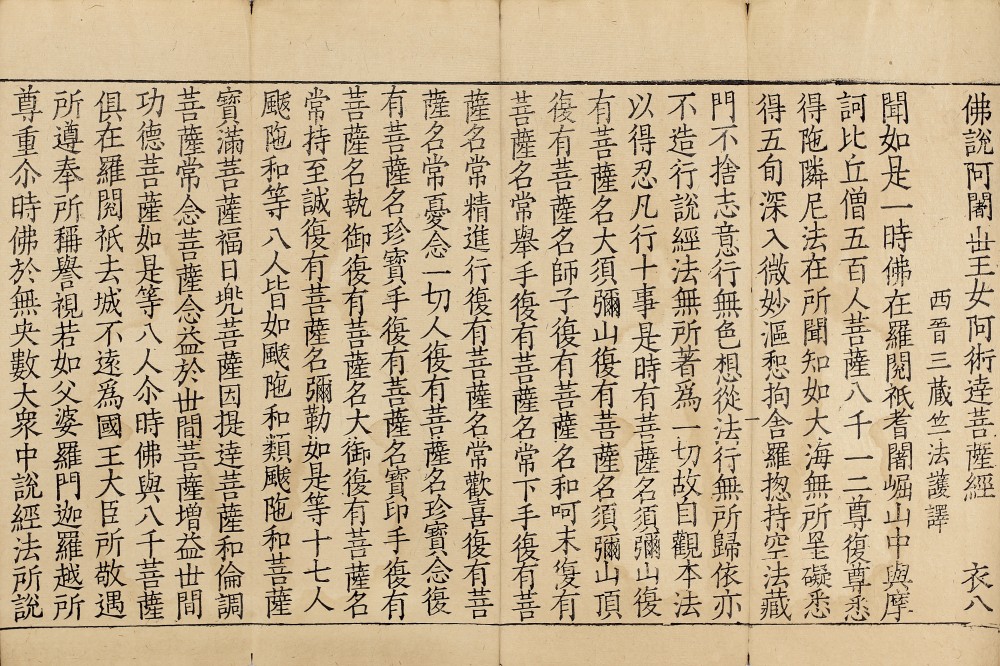 佛說阿闍世王女阿術逹菩薩經 衣八
西晉三藏竺法護譯
聞如是一時佛在羅閱祇耆闍崛山中與摩
訶比丘僧五百人菩薩八千一二尊復尊悉
得陁隣尼法在所聞知如大海無所罣礙悉
得五旬深入微妙漚惒拘舍羅揔持空法藏
門不捨志意行無色想從法行無所歸依亦
不造行說經法無所著爲一切故自觀本法
以得忍凡行十事是時有菩薩名須彌山復
有菩薩名大須彌山復有菩薩名須彌山頂
復有菩薩名師子復有菩薩名和呵末復有
菩薩名常舉手復有菩薩名常下手復有菩
薩名常精進行復有菩薩名常歡喜復有菩
薩名常憂念一切人復有菩薩名珍寶念復
有菩薩名珍寶手復有菩薩名寶印手復有
菩薩名執御復有菩薩名大御復有菩薩名
常持至誠復有菩薩名彌勒如是等十七人
颰陁和等八人皆如颰陁和類颰陁和菩薩
寶滿菩薩福日兠菩薩因提逹菩薩和倫調
菩薩常念菩薩念益於丗間菩薩增益丗間
功德菩薩如是等八人尒時佛與八千菩薩
俱在羅閱祇去城不遠爲國王大臣所敬遇
所遵奉所稱譽視若如父婆羅門迦羅越所
尊重尒時佛於無央數大衆中說經法所說